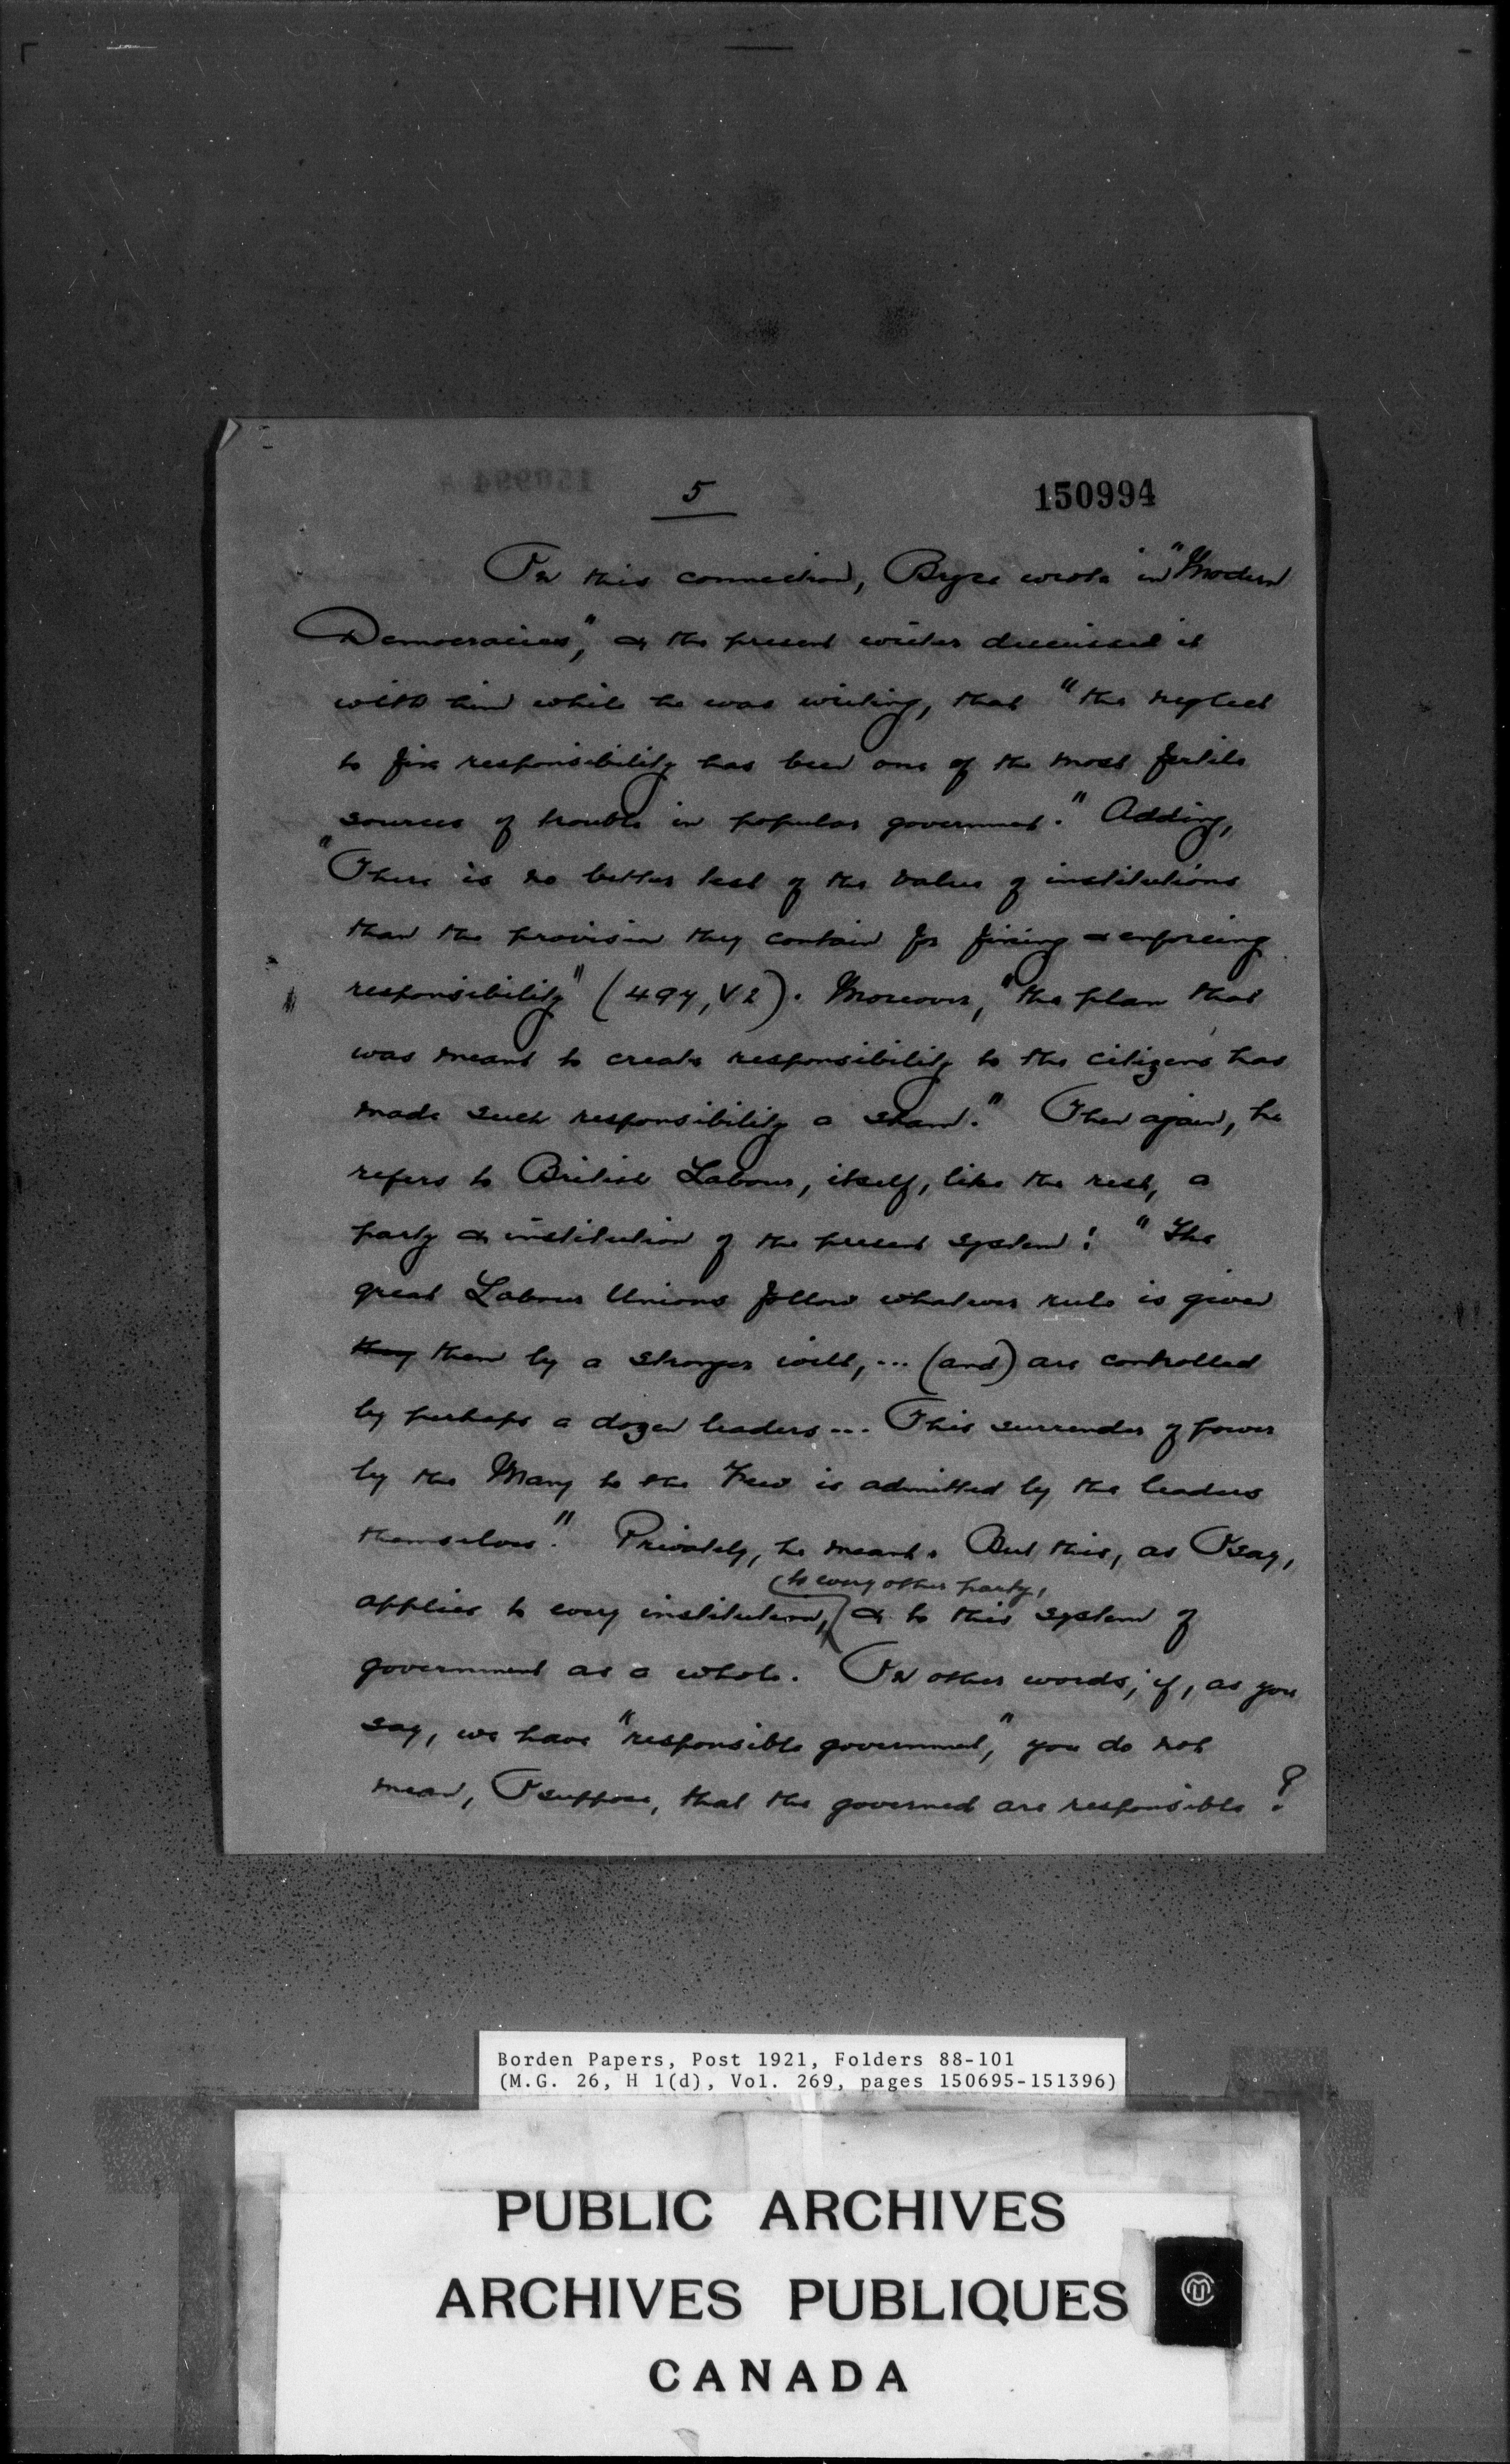 5
150994
In this connection, Bryce wrote in "Modern
Democracies," & the present writer discussed it
with him while he was writing, that "the neglect
to fix responsibility has been one of the most fertile
sources of trouble in popular government." Adding,
"There is no better test of the value of institutions
than the provision they contain for fixing & enforcing
responsibility" (494, V2). Moreover, "the plan that
was meant to create responsibility to the citizens has
made such responsibility a sham." Then again, he
refers to British Labour, itself, like the rest, a
party & institution of the present system: "The
great Labour Unions follow whatever rule is given
they them by a stronger will, ... (and) are controlled
by perhaps a dozen leaders ... This surrender of power
by the Many to the Few is admitted by the leaders
themselves." Privately, he meant. But this, as I say,
to every other party,
applies to every institution, & to this system of
government as a whole. In other words, if, as you
say, we have "responsible government," you do not
mean, I suppose, that the governed are responsible?
Borden Papers, Post 1921, Folders 88-101
(M.G. 26, H 1(d), Vol. 269, pages 150695-151396)
PUBLIC ARCHIVES
ARCHIVES PUBLIQUES
CANADA